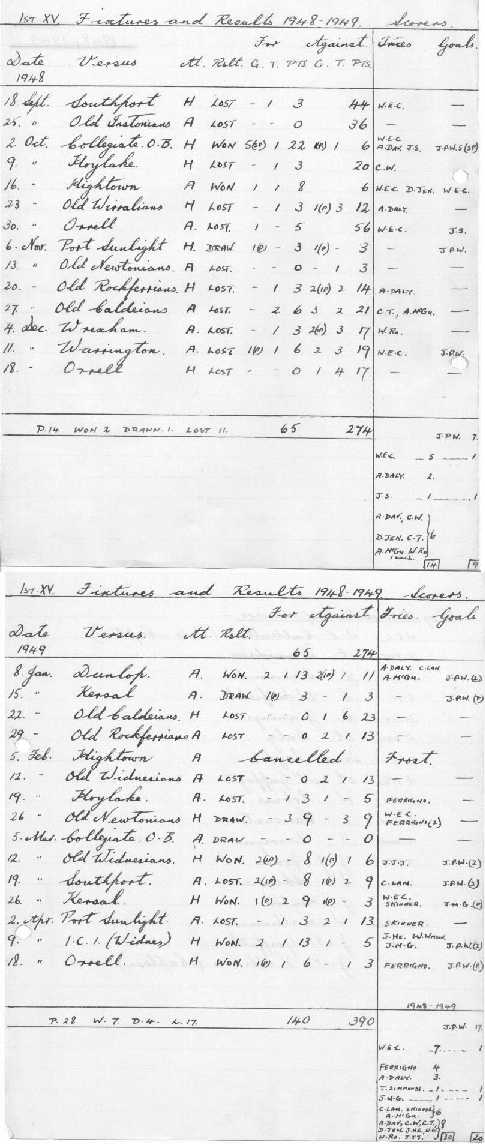 1ST XV. Fixtures and Results 1948-1949. Scorers.
For Against Tries Goals.
Date Versus At. Rslt. G. T. PTS G. T. PTS.
1948
18 Sept. Southport H LOST - 1 3 44 W.E.C. —
25. " Old Instonians A LOST - - 0 36 — —
2 Oct. Collegiate O.B. H WON 5(P) 1 22 1(P) 1 6 W.E.C. A.DAY. J.S. J.P.W.5(3P)
9. " Hoylake H LOST - 1 3 20 C.W.
16. - Hightown A WON 1 1 8 6 W.E.C. D.JEN. W.E.C.
23 - Old Wirralians H LOST - 1 3 1(P) 3 12 A.DALY. —
30. " Orrell A. LOST. 1 - 5 56 W.E.C. J.S.
6. Nov. Port Sunlight H. DRAW 1(P) - 3 1(P) - 3 — J.P.W.
13. " Old Newtonians. A LOST. - - 0 - 1 3 — —
20. - Old Rockferrians H LOST. - 1 3 2(1P) 2 14 A.DALY. —
27. - Old Caldeians A LOST. - 2 6 3 2 21 C.T., A.McGu. —
4. Dec. Wrexham. A. LOST. - 1 3 2(P) 3 17 W.Ro. —
11. " Warrington. A. LOST 1(P) 1 6 2 3 19 W.E.C. J.P.W.
18. - Orrell H LOST - - 0 1 4 17 — —
P.14 WON 2 DRAWN. 1. LOST 11. 65 274
J.P.W. 7.
W.E.C. — 5 — 1
A.DALY. 2.
J.S. — 1 — 1
A.DAY, C.W.
D.JEN. C.T. 6
A.McGu W.Ro
1 each
14 9
1ST XV. Fixtures and Results 1948-1949 Scorers.
For Against Tries. Goals
Date Versus. At Rslt.
1949 65 274
8 Jan. Dunlop. A. WON. 2 1 13 2(1P) 1 11 A.DALY. C.LAN. A.McGu. J.P.W.(2)
15. " Kersal A. DRAW 1(P) - 3 - 1 3 — J.P.W.(P)
22. - Old Caldeians. H LOST 0 1 6 23 — —
29 - Old Rockferrians A LOST 0 2 1 13 — —
5. Feb. Hightown A Cancelled Frost.
12. - Old Widnesians A LOST - - 0 2 1 13 — —
19. " Hoylake. A. LOST. - 1 3 1 - 5 FERRIGNO. —
26 " Old Newtonians H DRAW. - 3 9 - 3 9 W.E.C. FERRIGNO(2) —
5. Mar. Collegiate O.B. A DRAW - - 0 - - 0 — —
12. " Old Widnesians. H WON. 2(1P) - 8 1(P) 1 6 J.J.J. J.P.W.(2)
19. " Southport. A. LOST. 2(1P) - 8 1(P) 2 9 C.LAN. J.P.W.(2)
26. " Kersal H WON. 1(P) 2 9 1(P) - 3 W.E.C. SKINNER. J.N.G.(P)
2. Apr. Port Sunlight A. LOST. - 1 3 2 1 13 SKINNER. —
9. " I.C.I. (Widnes) H WON. 2 1 13 1 5 J.Mc. W.WALK J.N.G. J.P.W.(2)
18. " Orrell. H WON. 1(P) 1 6 - 1 3 FERRIGNO. J.P.W.(P)
1948-1949
P.28 W.7 D.4. L.17. 140 390 J.P.W. 17.
W.E.C. 7. 1
FERRIGNO 4
A.DALY. 3.
J.N.G. — 1 — 1
C.LAN, SKINNER
A.McGu. 6